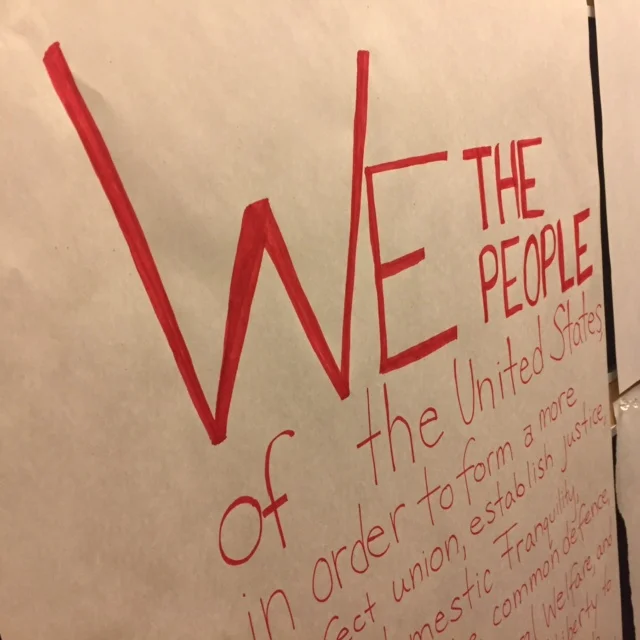 WE THE
PEOPLE
of the United States
in order to form a more
fect union, establish justice,
mestic Tranquility,
common defence,
Welfare, and
to